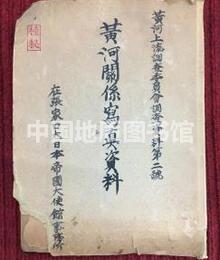 黃河上流調查委員會調查資料第二號
極秘
黃河關係寫眞資料
在張家口大日本帝國大使館事務所
中国地图图书馆